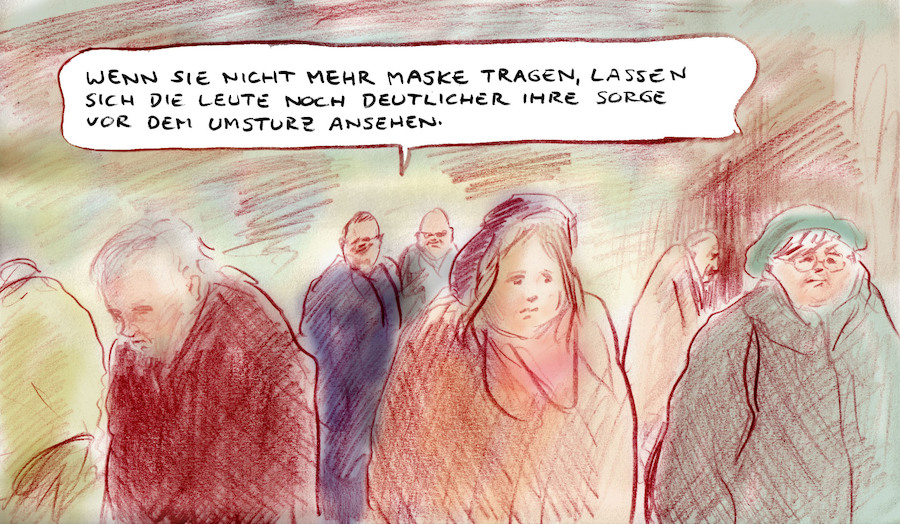 WENN SIE NICHT MEHR MASKE TRAGEN, LASSEN
SICH DIE LEUTE NOCH DEUTLICHER IHRE SORGE
VOR DEM UMSTURZ ANSEHEN.